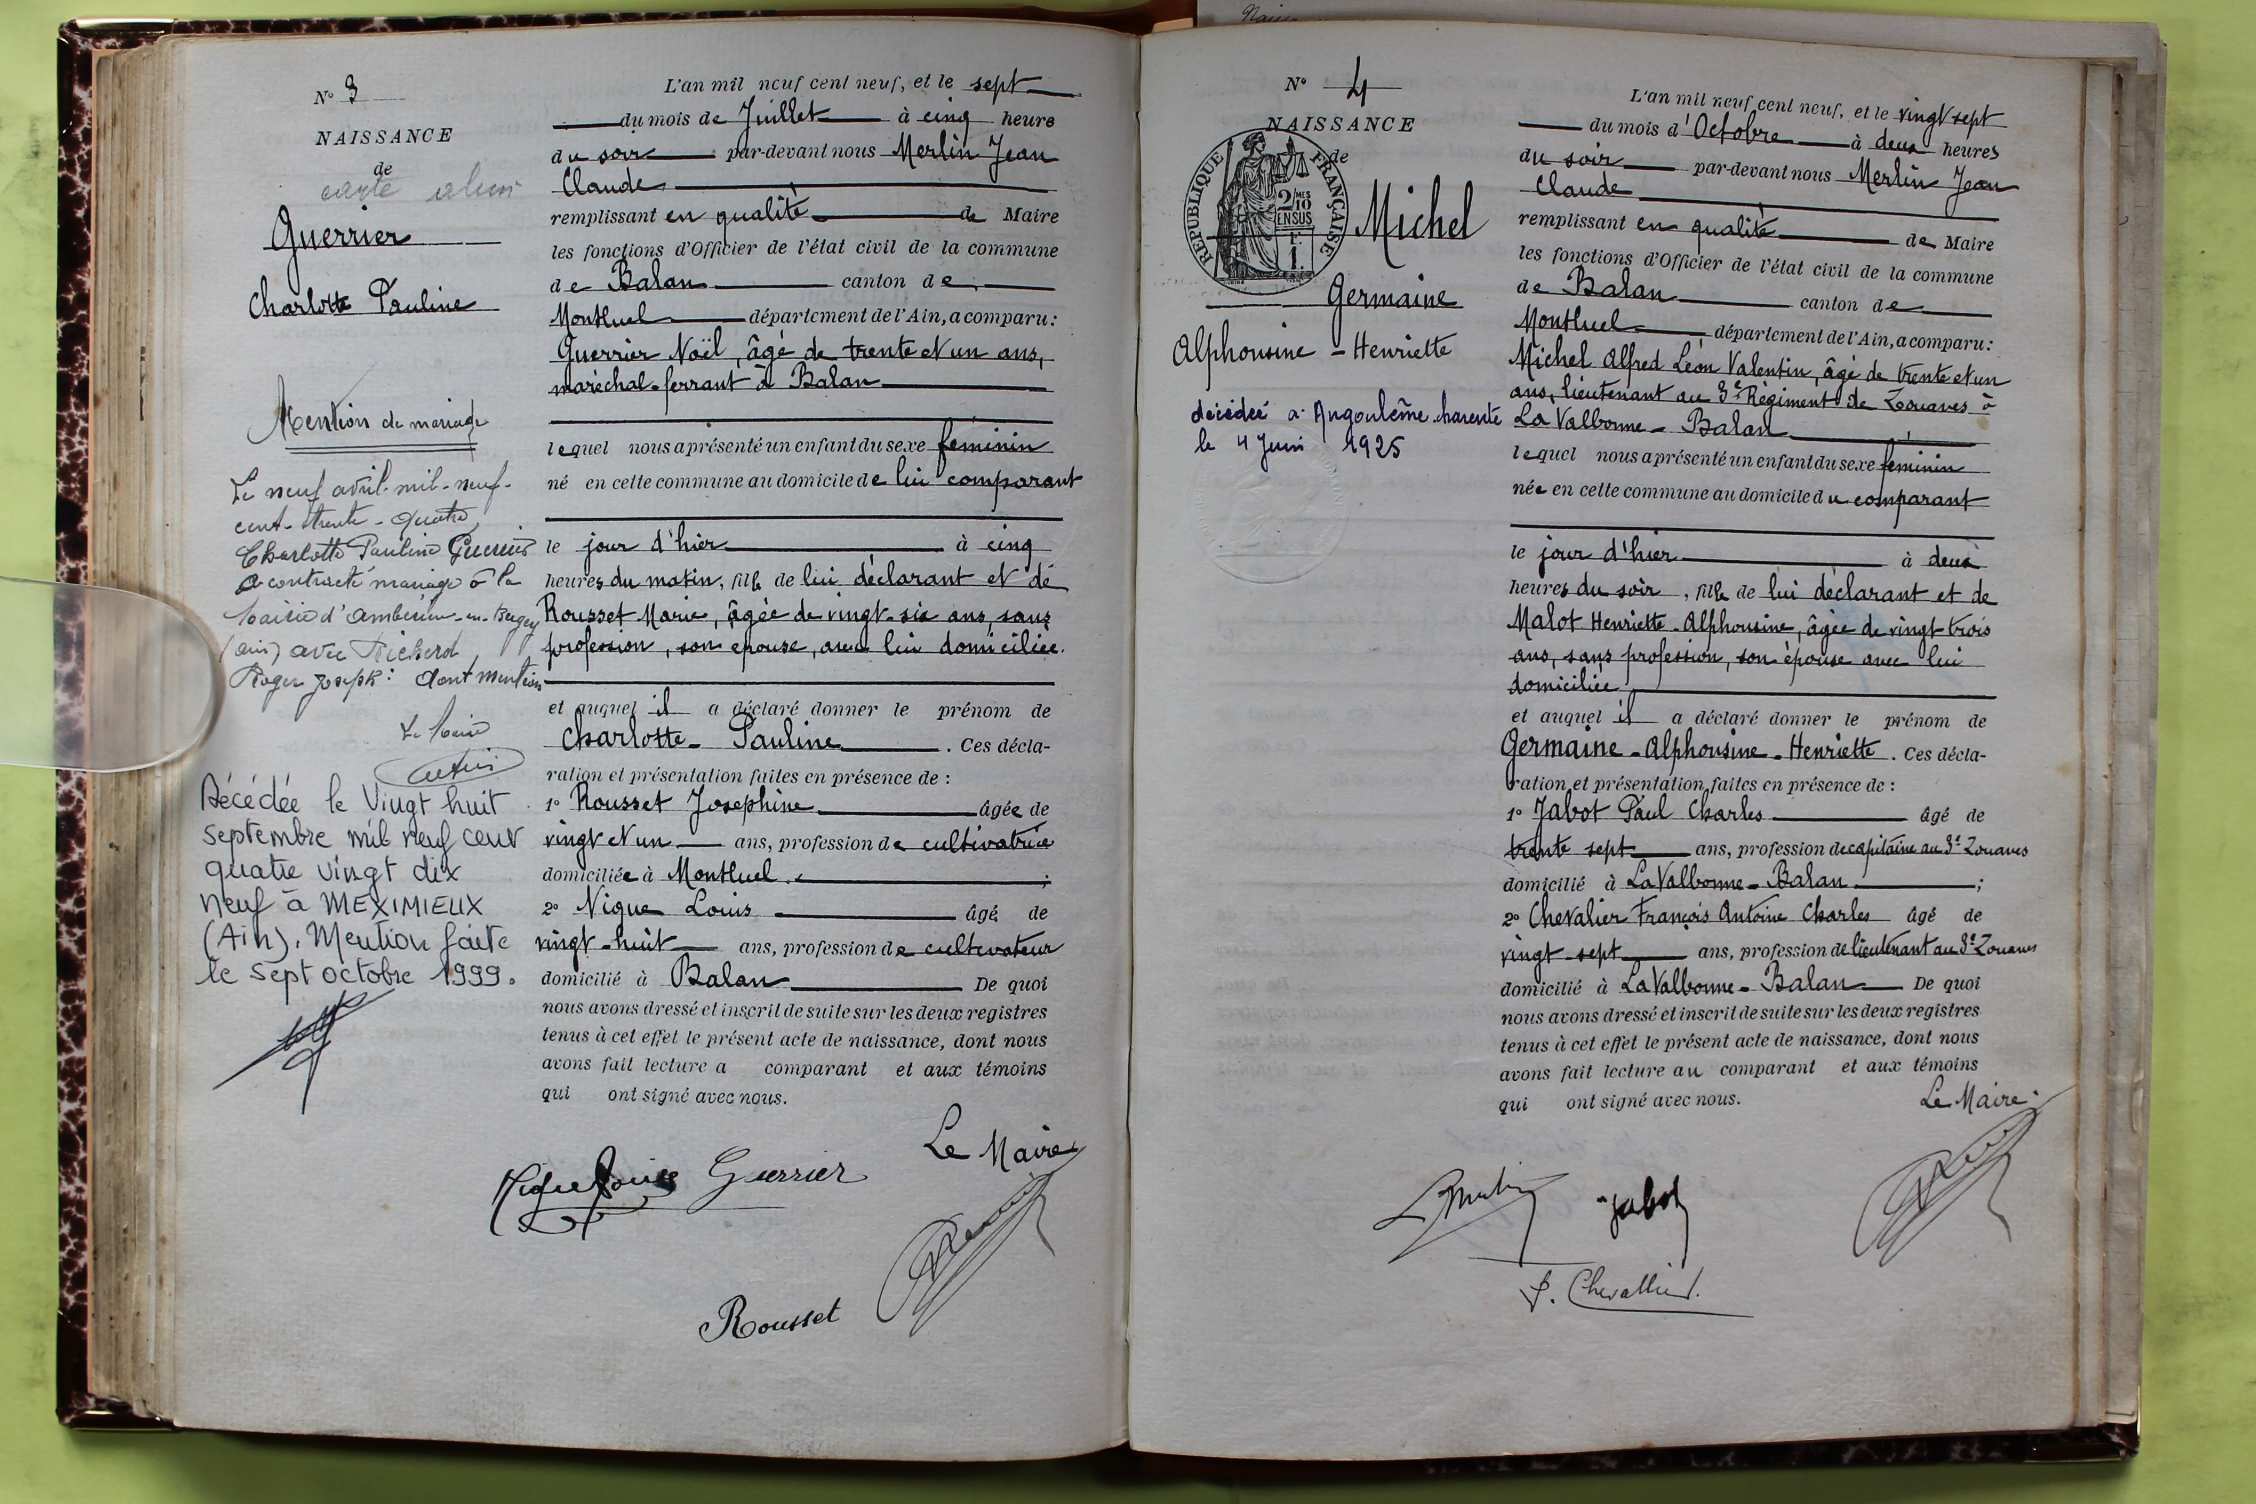 Nº 3
NAISSANCE
de
carte
Guerrier
Charlotte Pauline
Mention de mariage
Le neuf avril mil-neuf-
cent-trente-quatre
Charlotte Pauline Guerrier
a contracté mariage à la
Mairie d'Ambérieu-en-Bugey
(Ain) avec
Roger Joseph: dont mention
Le Maire
Décédée le Vingt huit
septembre mil neuf cent
quatre vingt dix
neuf à MEXIMIEUX
(Ain). Mention faite
le sept octobre 1999.
L'an mil neuf cent neuf, et le sept
du mois de Juillet à cinq heure
du soir par-devant nous Merlin Jean
Claude
remplissant en qualité de Maire
les fonctions d'Officier de l'état civil de la commune
de Balan canton de
Montluel département de l'Ain, a comparu:
Guerrier Noël, âgé de trente et un ans,
maréchal-ferrant à Balan
lequel nous a présenté un enfant du sexe féminin
né en cette commune au domicile de lui comparant
le jour d'hier à cinq
heures du matin, fille de lui déclarant et de
Rousset Marie, âgée de vingt-six ans, sans
profession, son épouse, avec lui domiciliée.
et auquel il a déclaré donner le prénom de
Charlotte-Pauline. Ces décla-
ration et présentation faites en présence de:
1º Rousset Josephine âgée de
vingt et un ans, profession de cultivatrice
domiciliée à Montluel ;
2º Nique Louis âgé de
vingt-huit ans, profession de cultivateur
domicilié à Balan De quoi
nous avons dressé et inscrit de suite sur les deux registres
tenus à cet effet le présent acte de naissance, dont nous
avons fait lecture a comparant et aux témoins
qui ont signé avec nous.
Le Maire
Nique Louis Guerrier
Rousset
Nº 4
NAISSANCE
de
RÉPUBLIQUE FRANÇAISE
2/10 MES
EN SUS
F.
1.
Michel
Germaine
Alphonsine-Henriette
décédée à Angoulême charente
le 4 Juin 1925
L'an mil neuf cent neuf, et le vingt sept
du mois d'Octobre à deux heures
du soir par-devant nous Merlin Jean
Claude
remplissant en qualité de Maire
les fonctions d'Officier de l'état civil de la commune
de Balan canton de
Montluel département de l'Ain, a comparu:
Michel Alfred Léon Valentin, âgé de trente et un
ans, lieutenant au 3e Régiment de Zouaves à
La Valbonne-Balan
lequel nous a présenté un enfant du sexe féminin
née en cette commune au domicile du comparant
le jour d'hier à deux
heures du soir, fille de lui déclarant et de
Malot Henriette-Alphonsine, âgée de vingt trois
ans, sans profession, son épouse avec lui
domiciliée
et auquel il a déclaré donner le prénom de
Germaine-Alphonsine-Henriette. Ces décla-
ration et présentation faites en présence de:
1º Jabot Paul Charles âgé de
trente sept ans, profession de capitaine au 3e Zouaves
domicilié à La Valbonne-Balan ;
2º Chevalier François Antoine Charles âgé de
vingt sept ans, profession de lieutenant au 3e Zouaves
domicilié à La Valbonne-Balan De quoi
nous avons dressé et inscrit de suite sur les deux registres
tenus à cet effet le présent acte de naissance, dont nous
avons fait lecture au comparant et aux témoins
qui ont signé avec nous.
Le Maire.
Jabot
F. Chevallier